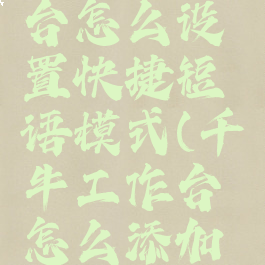 台怎么设
置快捷短
语模式(千
牛工作台
怎么添加